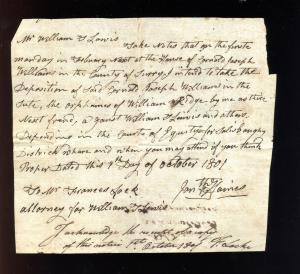 Mr William T Lewis
Take Notes that on the firste
munday in February Next at the House of Servold Joseph
Williams in the County of Surrey I intend to take the
Deposition of Said Joseph Williams in the
Sute, the orphaines of William by me as there
Next friend, a ganst William T Lewis and others
Depending in the Courte of Equity for Salisbaughy
Districk where and when you may attend if you think
Proper Dated this 1st Day of October 1801
To Mr Frances Lock
attorney for William T Lewis
Jonthn Haines
I acknowledge the receipt of a copy
of this notice 1st October 1801 F. Locke